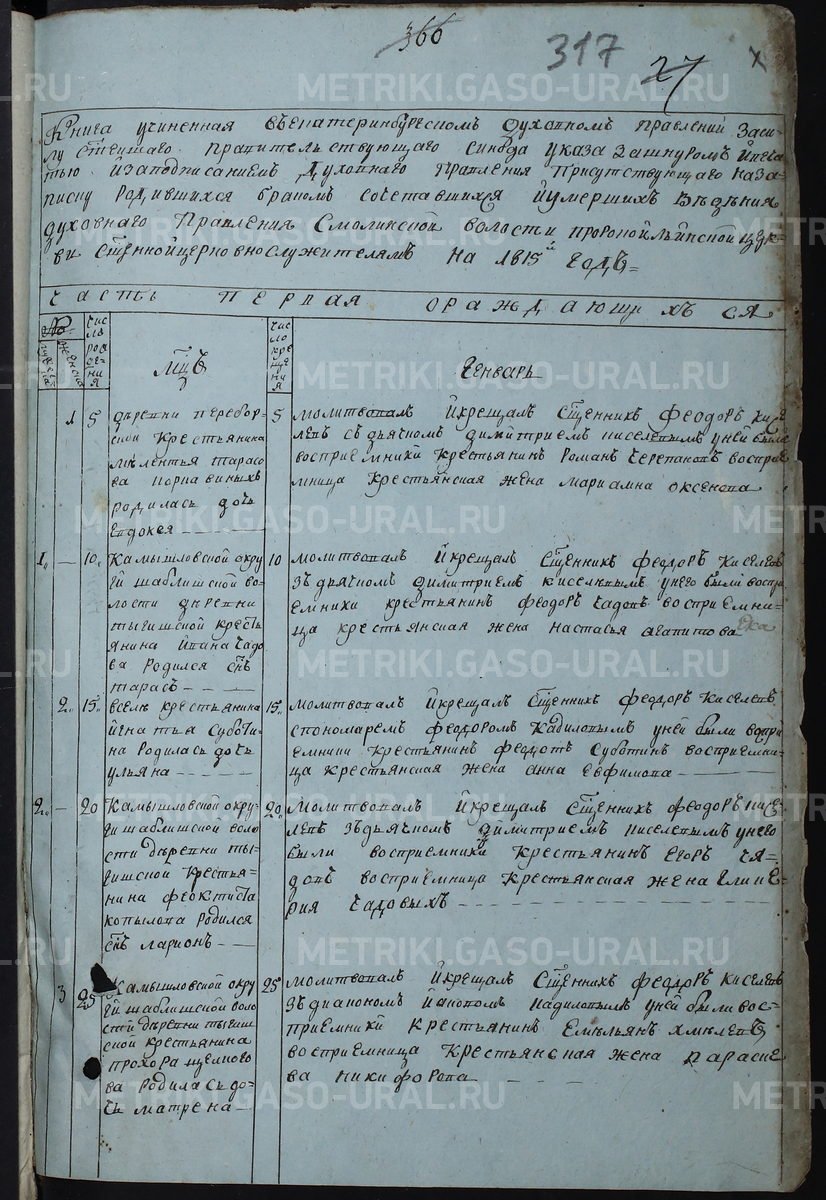 366
317
27
х
Книга учиненная въекатеринбургскомъ духовномъ правлении Заси-
лу Стѣишаго правительствующаго синода указа Зашнуромъ Ипеча-
тью Изаподписаниемъ Духовнаго правления присутствующаго наза-
писку родившихся бракомъ сочетавшихся Иумершихъ вѣденія
духовнаго Правления Смолинской волости пророкоильинской церк-
ви Сщеннойцерковнослужителямъ на 1815й годъ
часть первая ораждающихъся
мужеска
женска
число рожде-
ния
число кре
щения
Генварь
1 5
деревни перебор-
ской Крестьянина
родилась дочь
Евдокея
5
молитвовалъ Икрещалъ Сщенникъ феодоръ кисе
левъ съдьячкомъ димитриемъ киселевымъ уней были
восприемники Крестьянинъ Романъ Черепановъ восприе
мница крестьянская жена мариамна оксенова
1 — 10
Камышловской окру
ги шаблишской во-
лости деревни
тыгишской кресть
янина Ивана Чадо
ва Родился снъ
тарасъ
10
молитвовалъ Икрещалъ Сщенникъ феодоръ Киселевъ
Здьячкомъ димитриемъ киселевымъ унего были воспри
емники крестьянинъ феодоръ чадовъ восприемни-
ца крестьянская жена настасья агапитова
2 15
вселе крестьянина
Игнатья Суботи-
на родилась дочь
ульяна
15
молитвовалъ Икрещалъ Сщенникъ феодоръ Киселевъ
спономаремъ феодоромъ Кадиловымъ уней были воспри
емники Крестьянинъ федотъ Суботинъ восприемни-
ца Крестьянская жена анна Евфимова
2 — 20
Камышловской окру-
ги шаблишской воло
сти деревни ты-
гишской крестья-
нина феоктиста
копылова родился
снъ ларионъ
20
молитвовалъ Икрещалъ Сщенникъ феодоръ кисе
левъ Здьячкомъ димитриемъ киселевымъ унего
были восприемники крестьянинъ Егоръ ча-
довъ восприемница Крестьянская жена глике-
рия Чадовыхъ
3 25
Камышловской окру
ги шаблишской воло
сти деревни тыгиш
ской крестьянина
прохора
ва родилась до-
чь матрена
25
молитвовалъ Икрещалъ Сщенникъ феодоръ киселевъ
Здиакономъ Иаковомъ кадиловымъ уней были вос-
приемники крестьянинъ Емельянъ хмелевъ
восприемница Крестьянская жена параске
ва никифорова
METRIKI.GASO-URAL.RU